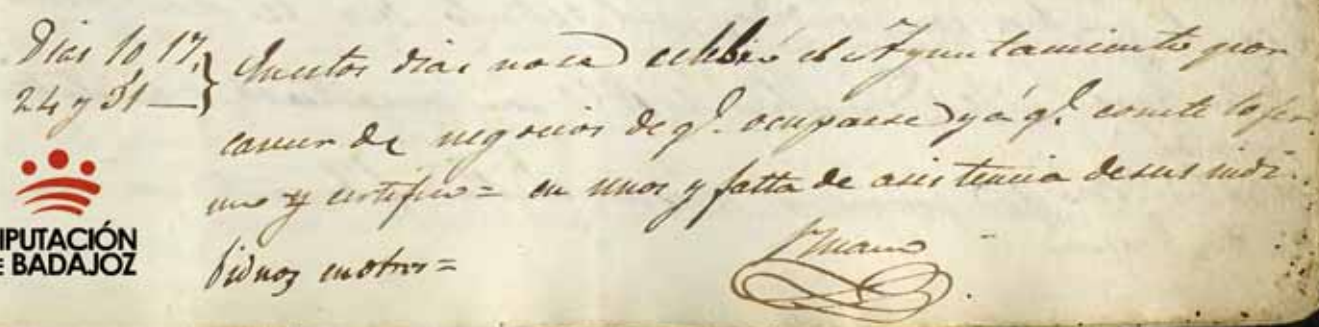 Dias 10, 17,
24 y 31 —
En estos dias no se celebró el Ayuntamiento por
carecer de negocios de q.e ocuparse y á q.e conste lo fir
mo y certifico = en unos y falta de asistencia de sus indi-
biduos en otros =
DIPUTACIÓN
DE BADAJOZ